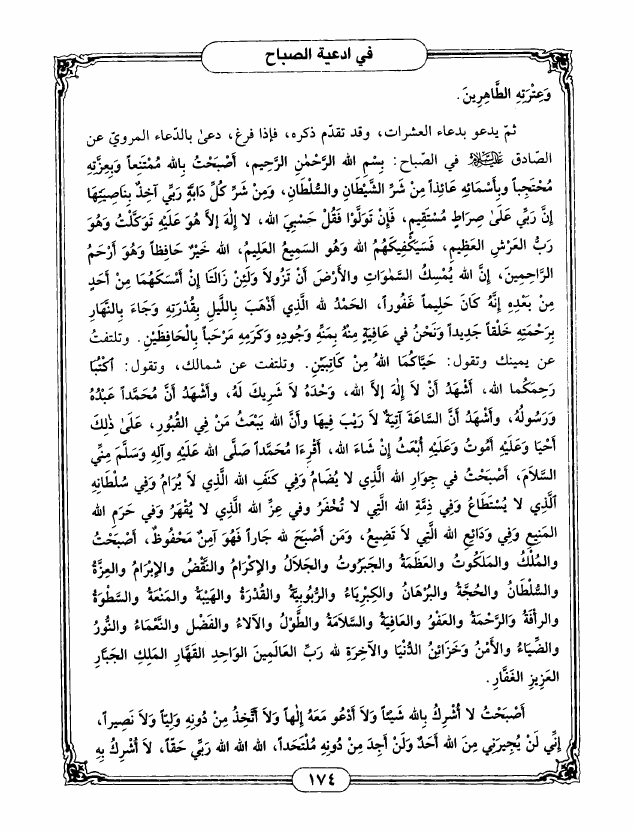 في ادعية الصباح
وَعِتْرَتِهِ الطَّاهِرِينَ.
ثمّ يدعو بدعاء العشرات، وقد تقدّم ذكره، فإذا فرغ، دعىٰ بالدّعاء المرويّ عن
الصّادق عليه السلام في الصّباح: بِسْمِ الله الرَّحْمٰنِ الرَّحِيمِ، أَصْبَحْتُ بِالله مُمْتَنِعاً وَبِعِزَّتِهِ
مُحْتَجِباً وَبِأَسْمَائِهِ عَائِذاً مِنْ شَرِّ الشَّيْطَانِ وَالسُّلْطَانِ، وَمِنْ شَرِّ كُلِّ دَابَّةٍ رَبِّي آخِذٌ بِنَاصِيَتِهَا
إِنَّ رَبِّي عَلَىٰ صِرَاطٍ مُسْتَقِيمٍ، فَإِنْ تَوَلَّوْا فَقُلْ حَسْبِيَ الله، لا إِلٰهَ إِلاَّ هُوَ عَلَيْهِ تَوَكَّلْتُ وَهُوَ
رَبُّ العَرْشِ العَظِيمِ، فَسَيَكْفِيكَهُمُ الله وَهُوَ السَّمِيعُ العَلِيمُ، الله خَيْرٌ حَافِظاً وَهُوَ أَرْحَمُ
الرَّاحِمِينَ، إِنَّ الله يُمْسِكُ السَّمٰوَاتِ وَالأَرْضَ أَنْ تَزُولاَ وَلَئِنْ زَالَتَا إِنْ أَمْسَكَهُمَا مِنْ أَحَدٍ
مِنْ بَعْدِهِ إِنَّهُ كَانَ حَلِيماً غَفُوراً، الحَمْدُ لله الَّذِي أَذْهَبَ بِاللَّيلِ بِقُدْرَتِهِ وَجَاءَ بِالنَّهَارِ
بِرَحْمَتِهِ خَلْقاً جَدِيداً وَنَحْنُ في عَافِيَةٍ مِنْهُ بِمَنِّهِ وَجُودِهِ وَكَرَمِهِ مَرْحَباً بِالْحَافِظَيْنِ. وتلتفتُ
عن يمينك وتقول: حَيَّاكُمَا اللهُ مِنْ كَاتِبَيْنِ. وتلتفت عن شمالك، وتقول: اُكْتُبَا
رَحِمَكُما الله، أَشْهَدُ أَنْ لاَ إِلٰهَ إِلاَّ الله، وَحْدَهُ لاَ شَرِيكَ لَهُ، وأَشْهَدُ أَنَّ مُحَمَّداً عَبْدُهُ
وَرَسُولُهُ، وأَشْهَدُ أَنَّ السَّاعَةَ آتِيَةٌ لاَ رَيْبَ فِيهَا وأَنَّ الله يَبْعَثُ مَنْ فِي القُبُورِ، عَلَىٰ ذٰلِكَ
أَحْيَا وَعَلَيْهِ أَمُوتُ وَعَلَيْهِ أُبْعَثُ إِنْ شَاءَ الله، أَقْرِءَا مُحَمَّداً صَلَّى الله عَلَيْهِ وَآلِهِ وَسَلَّمَ مِنِّي
السَّلاَمَ، أَصْبَحْتُ في جِوَارِ الله الَّذِي لا يُضَامُ وَفِي كَنَفِ الله الَّذِي لاَ يُرَامُ وَفِي سُلْطَانِهِ
الَّذِي لا يُسْتَطَاعُ وَفِي ذِمَّةِ الله الَّتِي لا تُخْفَرُ وفي عِزِّ الله الَّذِي لا يُقْهَرُ وَفي حَرَمِ الله
المَنِيعِ وَفِي وَدَائِعِ الله الَّتِي لاَ تَضِيعُ، وَمَن أَصْبَحَ لله جَاراً فَهُوَ آمِنٌ مَحْفُوظٌ، أَصْبَحْتُ
والمُلْكُ والمَلَكُوتُ والعَظَمَةُ والجَبَرُوتُ والجَلاَلُ والإِكْرَامُ والنَّقْضُ والإِبْرَامُ والعِزَّةُ
والسُّلْطَانُ والحُجَّةُ والبُرْهَانُ والكِبْرِيَاءُ والرُّبُوبِيَّةُ والقُدْرَةُ والهَيْبَةُ والمَنْعَةُ والسَّطْوَةُ
والرأْفَةُ والرَّحْمَةُ والعَفْوُ والعَافِيَةُ والسَّلاَمَةُ والطَّوْلُ والآلاءُ والفَضْلُ والنَّعْمَاءُ والنُّورُ
والضِّيَاءُ والأَمْنُ وَخَزَائِنُ الدُّنْيَا والآخِرَةِ لله رَبِّ العَالَمِينَ الوَاحِدِ القَهَّارِ المَلِكِ الجَبَّارِ
العَزِيزِ الغَفَّارِ.
أَصْبَحْتُ لا أُشْرِكُ بِالله شَيْئاً وَلاَ أَدْعُو مَعَهُ إِلٰهاً وَلاَ أَتَّخِذُ مِنْ دُونِهِ وَلِيّاً وَلاَ نَصِيراً،
إِنِّي لَنْ يُجِيرَنِي مِنَ الله أَحَدٌ وَلَنْ أَجِدَ مِنْ دُونِهِ مُلْتَحَداً، الله الله الله رَبِّي حَقّاً، لاَ أُشْرِكُ بِهِ
١٧٤